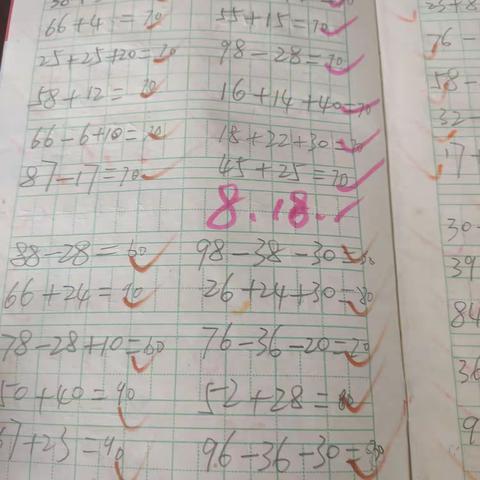 66+4=70 55+15=70
25+25+20=70 98-28=70
58+12=70 16+14+40=70
66-6+10=70 18+22+30=70
87-17=70 45+25=70
8.18.
88-28=60 98-38-30=30
66+24=90 26+24+30=80
78-28+10=60 76-36-20=20
50+40=90 52+28=80
67+23=90 96-36-30=30
76-
58-
32-
17+
30-
39
84
36
9